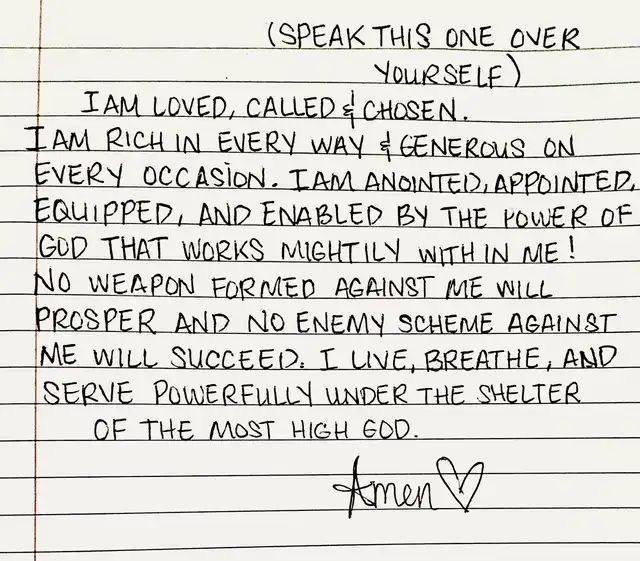 (SPEAK THIS ONE OVER
YOURSELF)
I AM LOVED, CALLED & CHOSEN.
I AM RICH IN EVERY WAY & GENEROUS ON
EVERY OCCASION. I AM ANOINTED, APPOINTED,
EQUIPPED, AND ENABLED BY THE POWER OF
GOD THAT WORKS MIGHTILY WITH IN ME!
NO WEAPON FORMED AGAINST ME WILL
PROSPER AND NO ENEMY SCHEME AGAINST
ME WILL SUCCEED. I LIVE, BREATHE, AND
SERVE POWERFULLY UNDER THE SHELTER
OF THE MOST HIGH GOD.
Amen ♡